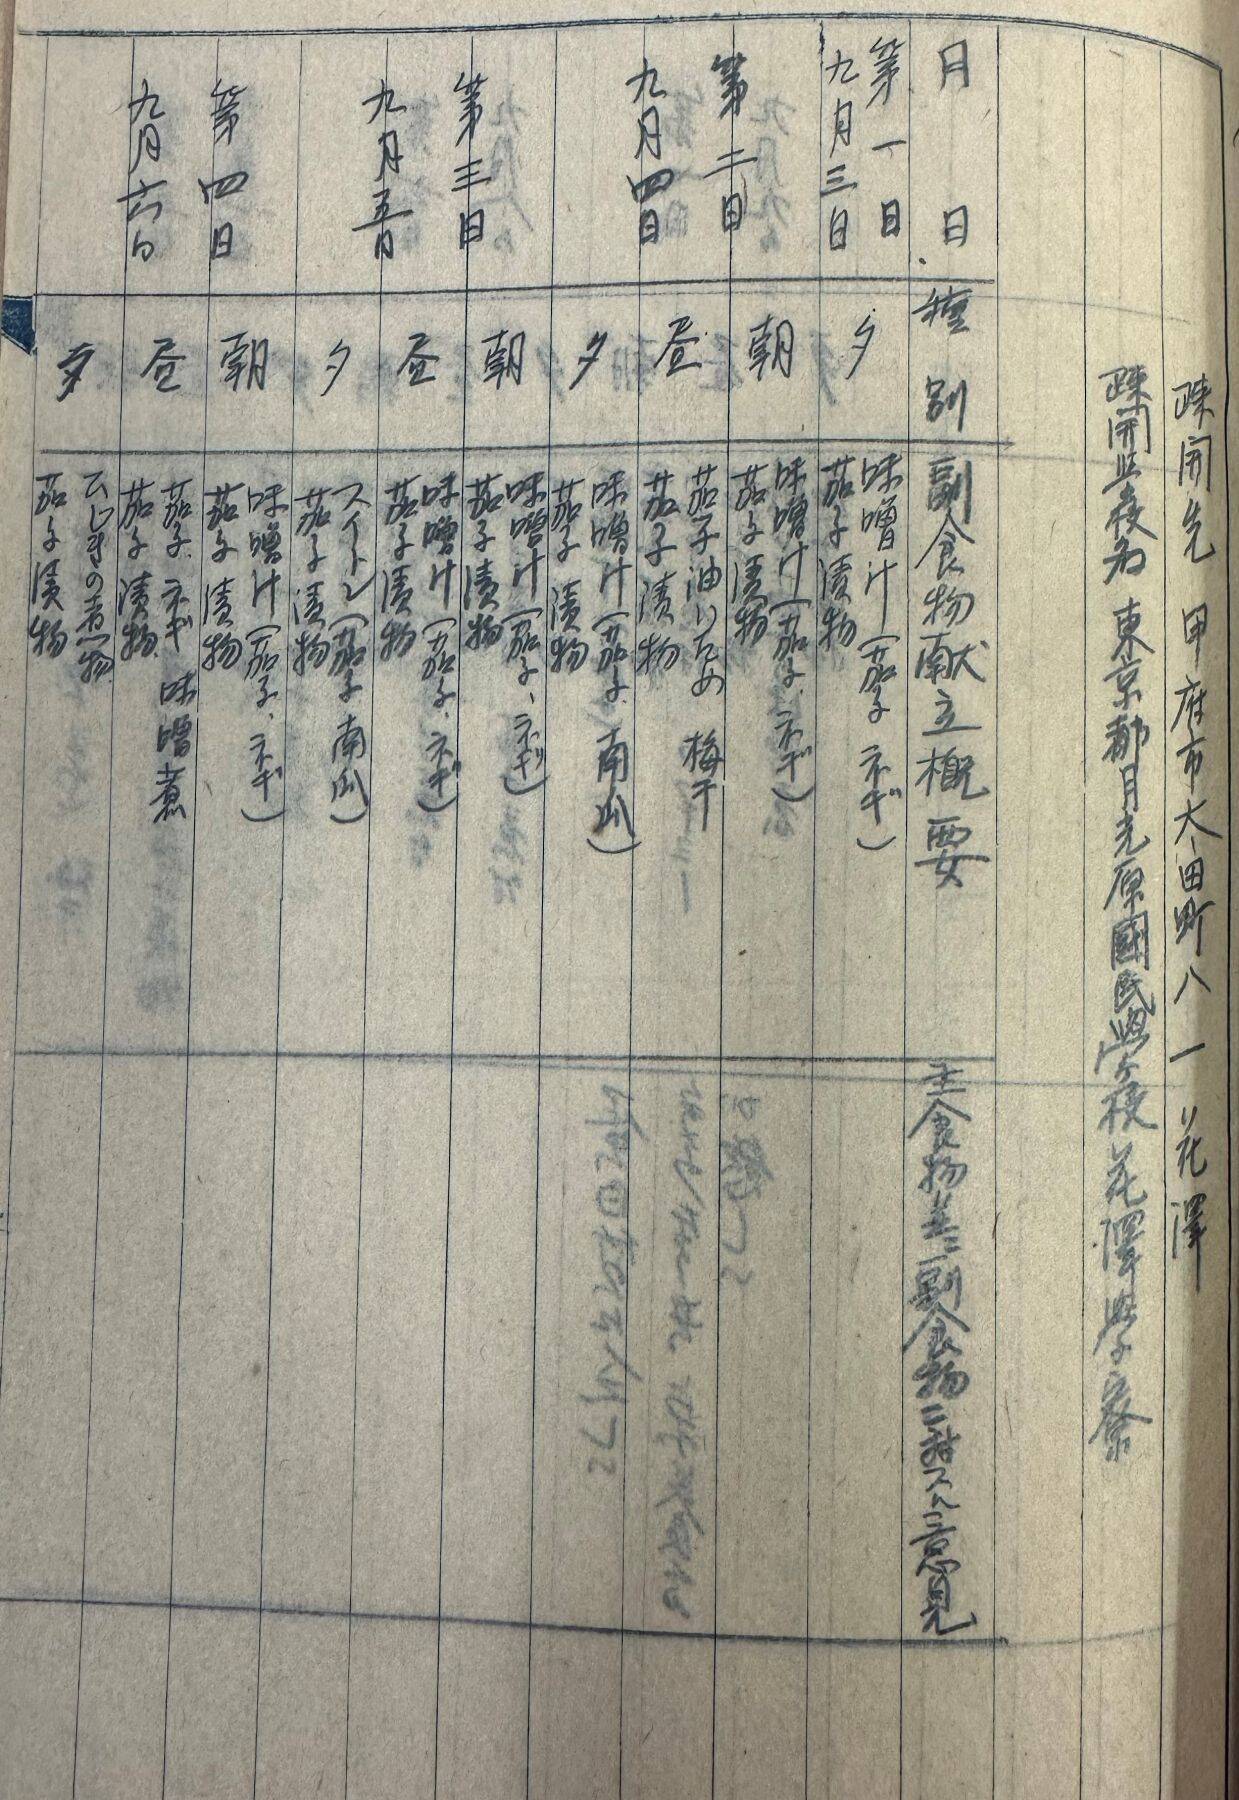 疎開先 甲府市太田町八一 花澤
疎開学校名 東京都月光原國民學校 花澤學寮
月日 種別 副食物献立概要 主食物並ニ副食物ニ対スル意見
第一日 夕 味噌汁(茄子 ネギ)
九月三日 茄子漬物
第二日 朝 味噌汁(茄子、ネギ)
茄子漬物
九月四日 昼 茄子油いため 梅干
茄子漬物
夕 味噌汁(茄子、南瓜)
茄子漬物
第三日 朝 味噌汁(茄子、ネギ)
茄子漬物
九月五日 昼 味噌汁(茄子、ネギ)
茄子漬物
夕 スイトン(茄子 南瓜)
茄子漬物
第四日 朝 味噌汁(茄子、ネギ)
茄子漬物
九月六日 昼 茄子、ネギ 味噌煮
茄子漬物
夕 ひじきの煮物
茄子漬物